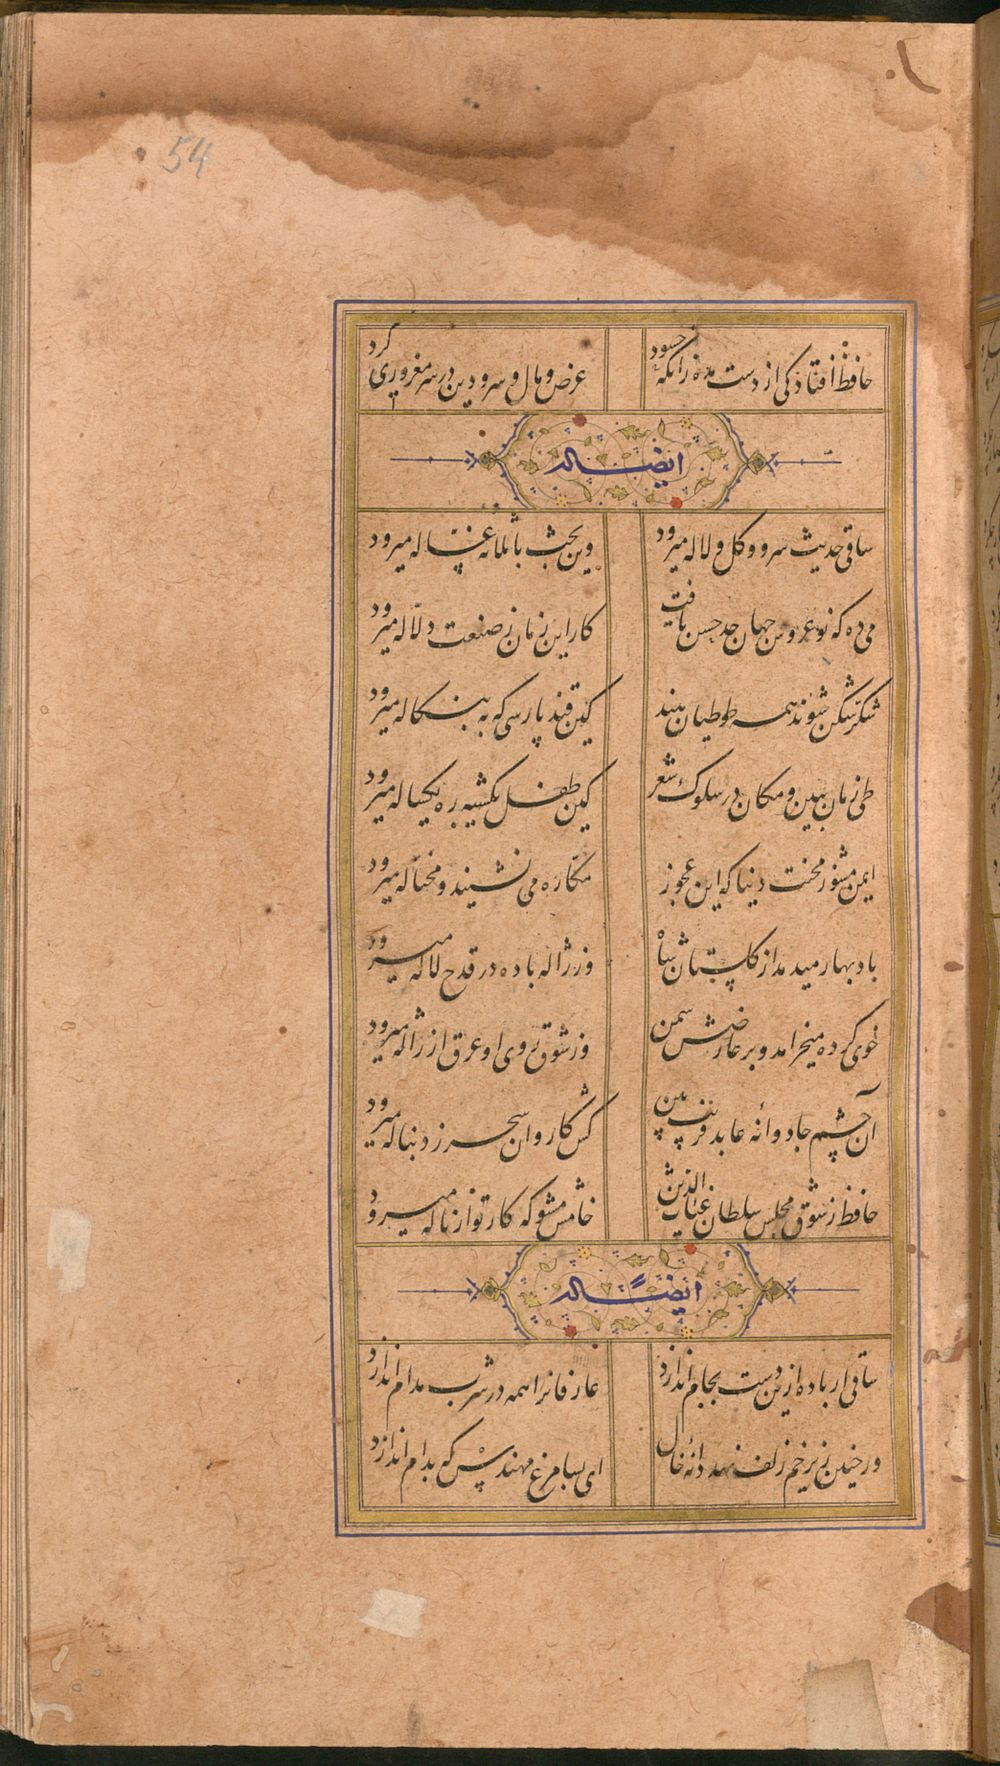 54
حافظ افتادگی از دست مده زانکه حسود
عرض و مال و سر و دین در سر مغروری کرد
ایضاله
ساقی حدیث سرو و گل و لاله میرود
وین بحث با ثلاثه غساله میرود
می ده که نوعروس جهان حد حسن یافت
کار این زمان ز صنعت دلاله میرود
شکرشکن شوند همه طوطیان هند
کین قند پارسی که به بنکاله میرود
طی زمان ببین و مکان در سلوک شعر
کین طفل یکشبه ره یکساله میرود
ایمن مشو ز محنت دنیا که این عجوز
مکاره می نشیند و محتاله میرود
باد بهار میدمد از گلستان شاه
وز ژاله باده در قدح لاله میرود
خوی کرده میخرامد و بر عارضش سمن
وز شوق روی او عرق از ژاله میرود
آن چشم جادوانه عابد فریب بین
کش کاروان سحر ز دنباله میرود
حافظ ز شوق مجلس سلطان غیاث الدین
خامش مشو که کار تو از ناله میرود
ایضاً له
ساقی ار باده ازین دست بجام اندازد
عارفانرا همه در شرب مدام اندازد
ور چنین زیر خم زلف نهد دانه خال
ای بسا مرغ مهندس که بدام اندازد